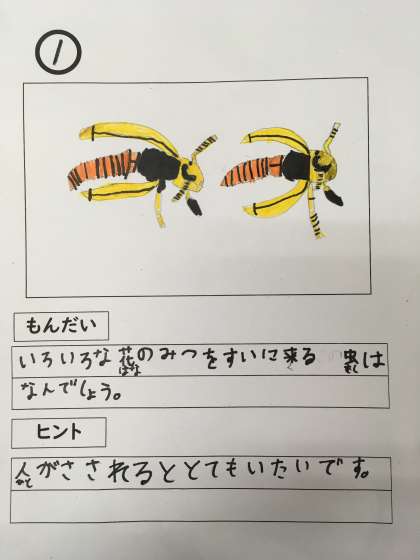 1
もんだい
いろいろな花のみつをすいに来る 虫は
ばな く むし
なんでしょう。
ヒント
人がさされるととてもいたいです。
ひと